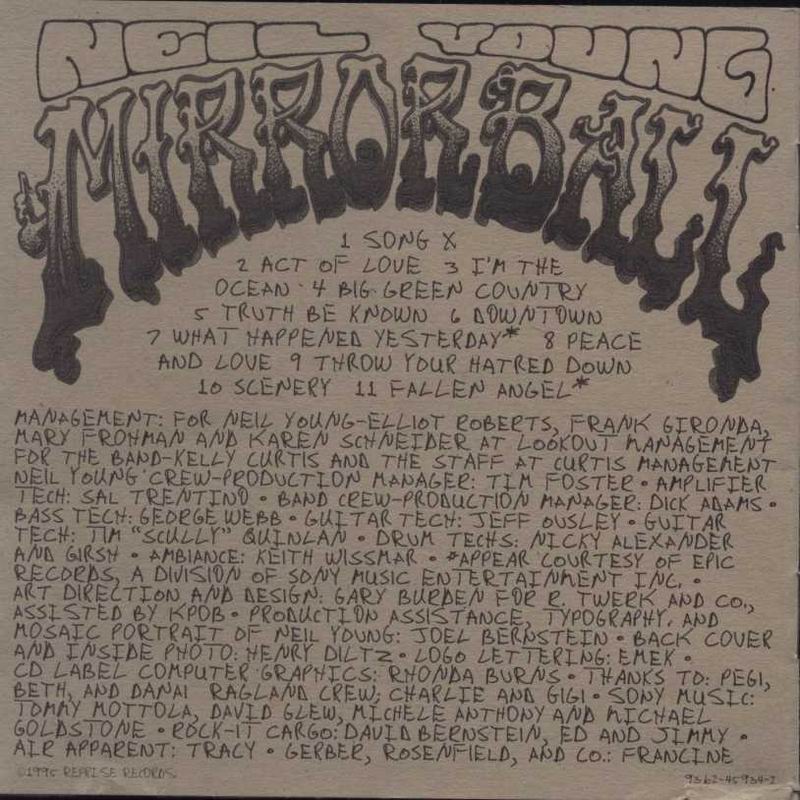 NEIL YOUNG
MIRROR BALL
1 SONG X
2 ACT OF LOVE 3 I'M THE
OCEAN · 4 BIG GREEN COUNTRY
5 TRUTH BE KNOWN 6 DOWNTOWN
7 WHAT HAPPENED YESTERDAY* 8 PEACE
AND LOVE 9 THROW YOUR HATRED DOWN
10 SCENERY 11 FALLEN ANGEL*
MANAGEMENT: FOR NEIL YOUNG-ELLIOT ROBERTS, FRANK GIRONDA,
MARY FROHMAN AND KAREN SCHNEIDER AT LOOKOUT MANAGEMENT
FOR THE BAND-KELLY CURTIS AND THE STAFF AT CURTIS MANAGEMENT
NEIL YOUNG CREW-PRODUCTION MANAGER: TIM FOSTER • AMPLIFIER
TECH: SAL TRENTINO • BAND CREW-PRODUCTION MANAGER: DICK ADAMS •
BASS TECH: GEORGE WEBB • GUITAR TECH: JEFF OUSLEY • GUITAR
TECH: TIM "SCULLY" QUINLAN • DRUM TECHS: NICKY ALEXANDER
AND GIRSH • AMBIANCE: KEITH WISSMAR • *APPEAR COURTESY OF EPIC
RECORDS, A DIVISION OF SONY MUSIC ENTERTAINMENT INC. •
ART DIRECTION AND DESIGN: GARY BURDEN FOR R. TWERK AND CO.,
ASSISTED BY KPDB • PRODUCTION ASSISTANCE, TYPOGRAPHY, AND
MOSAIC PORTRAIT OF NEIL YOUNG: JOEL BERNSTEIN • BACK COVER
AND INSIDE PHOTO: HENRY DILTZ • LOGO LETTERING: EMEK •
CD LABEL COMPUTER GRAPHICS: RHONDA BURNS • THANKS TO: PEGI,
BETH, AND DANAI RAGLAND CREW; CHARLIE AND GIGI • SONY MUSIC:
TOMMY MOTTOLA, DAVID GLEW, MICHELE ANTHONY AND MICHAEL
GOLDSTONE • ROCK-IT CARGO: DAVID BERNSTEIN, ED AND JIMMY •
AIR APPARENT: TRACY • GERBER, ROSENFIELD, AND CO.: FRANCINE
©1995 REPRISE RECORDS 9362-45934-2